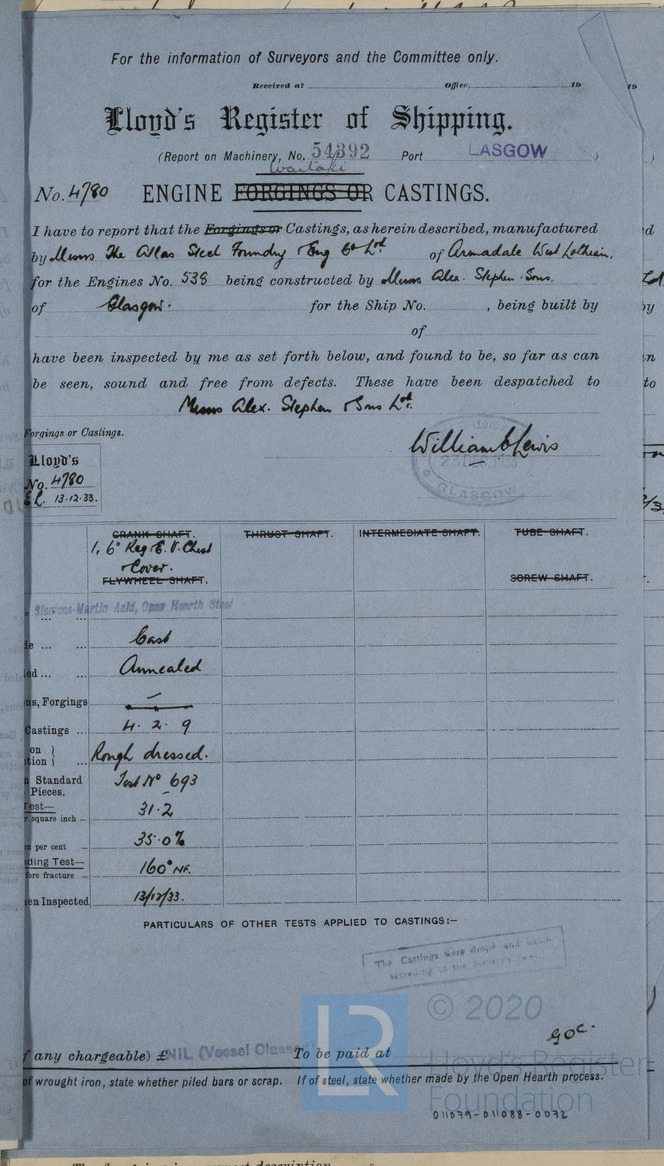 For the information of Surveyors and the Committee only.
Received at Office, 19
Lloyd's Register of Shipping.
(Report on Machinery, No. 54392 Port LASGOW )
Waitaki
No. 4780 ENGINE FORGINGS OR CASTINGS.
I have to report that the Forgings or Castings, as herein described, manufactured
by Messrs The Atlas Steel Foundry & Eng Co Ltd of Armadale West Lothian.
for the Engines No. 538 being constructed by Messrs Alex. Stephen Sons.
of Glasgow. for the Ship No. , being built by
of
have been inspected by me as set forth below, and found to be, so far as can
be seen, sound and free from defects. These have been despatched to
Messrs Alex. Stephen & Sons Ltd.
Forgings or Castings.
William C Lewis
GLASGOW
Lloyd's
No. 4780
13.12.33.
CRANK SHAFT. THRUST SHAFT. INTERMEDIATE SHAFT. TUBE SHAFT.
1, 6" Reg E.V. Chest
& Cover.
FLYWHEEL SHAFT. SCREW SHAFT.
Siemens-Martin Acid, Open Hearth Steel
Cast
Annealed
ns, Forgings —
Castings ... 4. 2. 9
on }
tion } Rough dressed.
Standard Test No 693
Pieces.
Test—
square inch ... 31.2
per cent ... 35.0%
ding Test—
fore fracture ... 160° NF.
en Inspected 13/12/33.
PARTICULARS OF OTHER TESTS APPLIED TO CASTINGS:—
The Castings were
according to the
LR
© 2020
Lloyd's Register
Foundation
f any chargeable) £ NIL (Vessel To be paid at
of wrought iron, state whether piled bars or scrap. If of steel, state whether made by the Open Hearth process.
011079-011088-0072